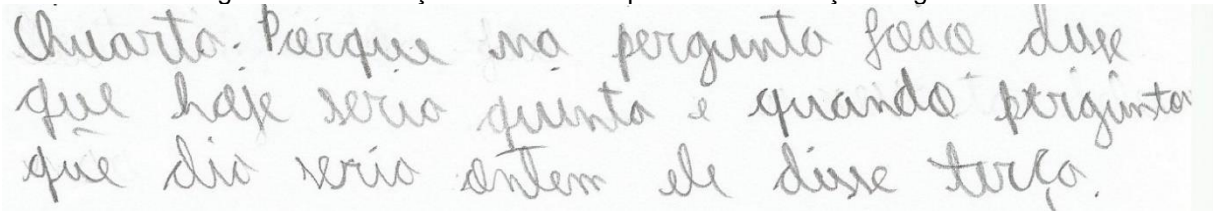 Quarta. Porque na pergunta João disse
que hoje seria quinta e quando pergunta
que dia seria ontem ele disse terça.